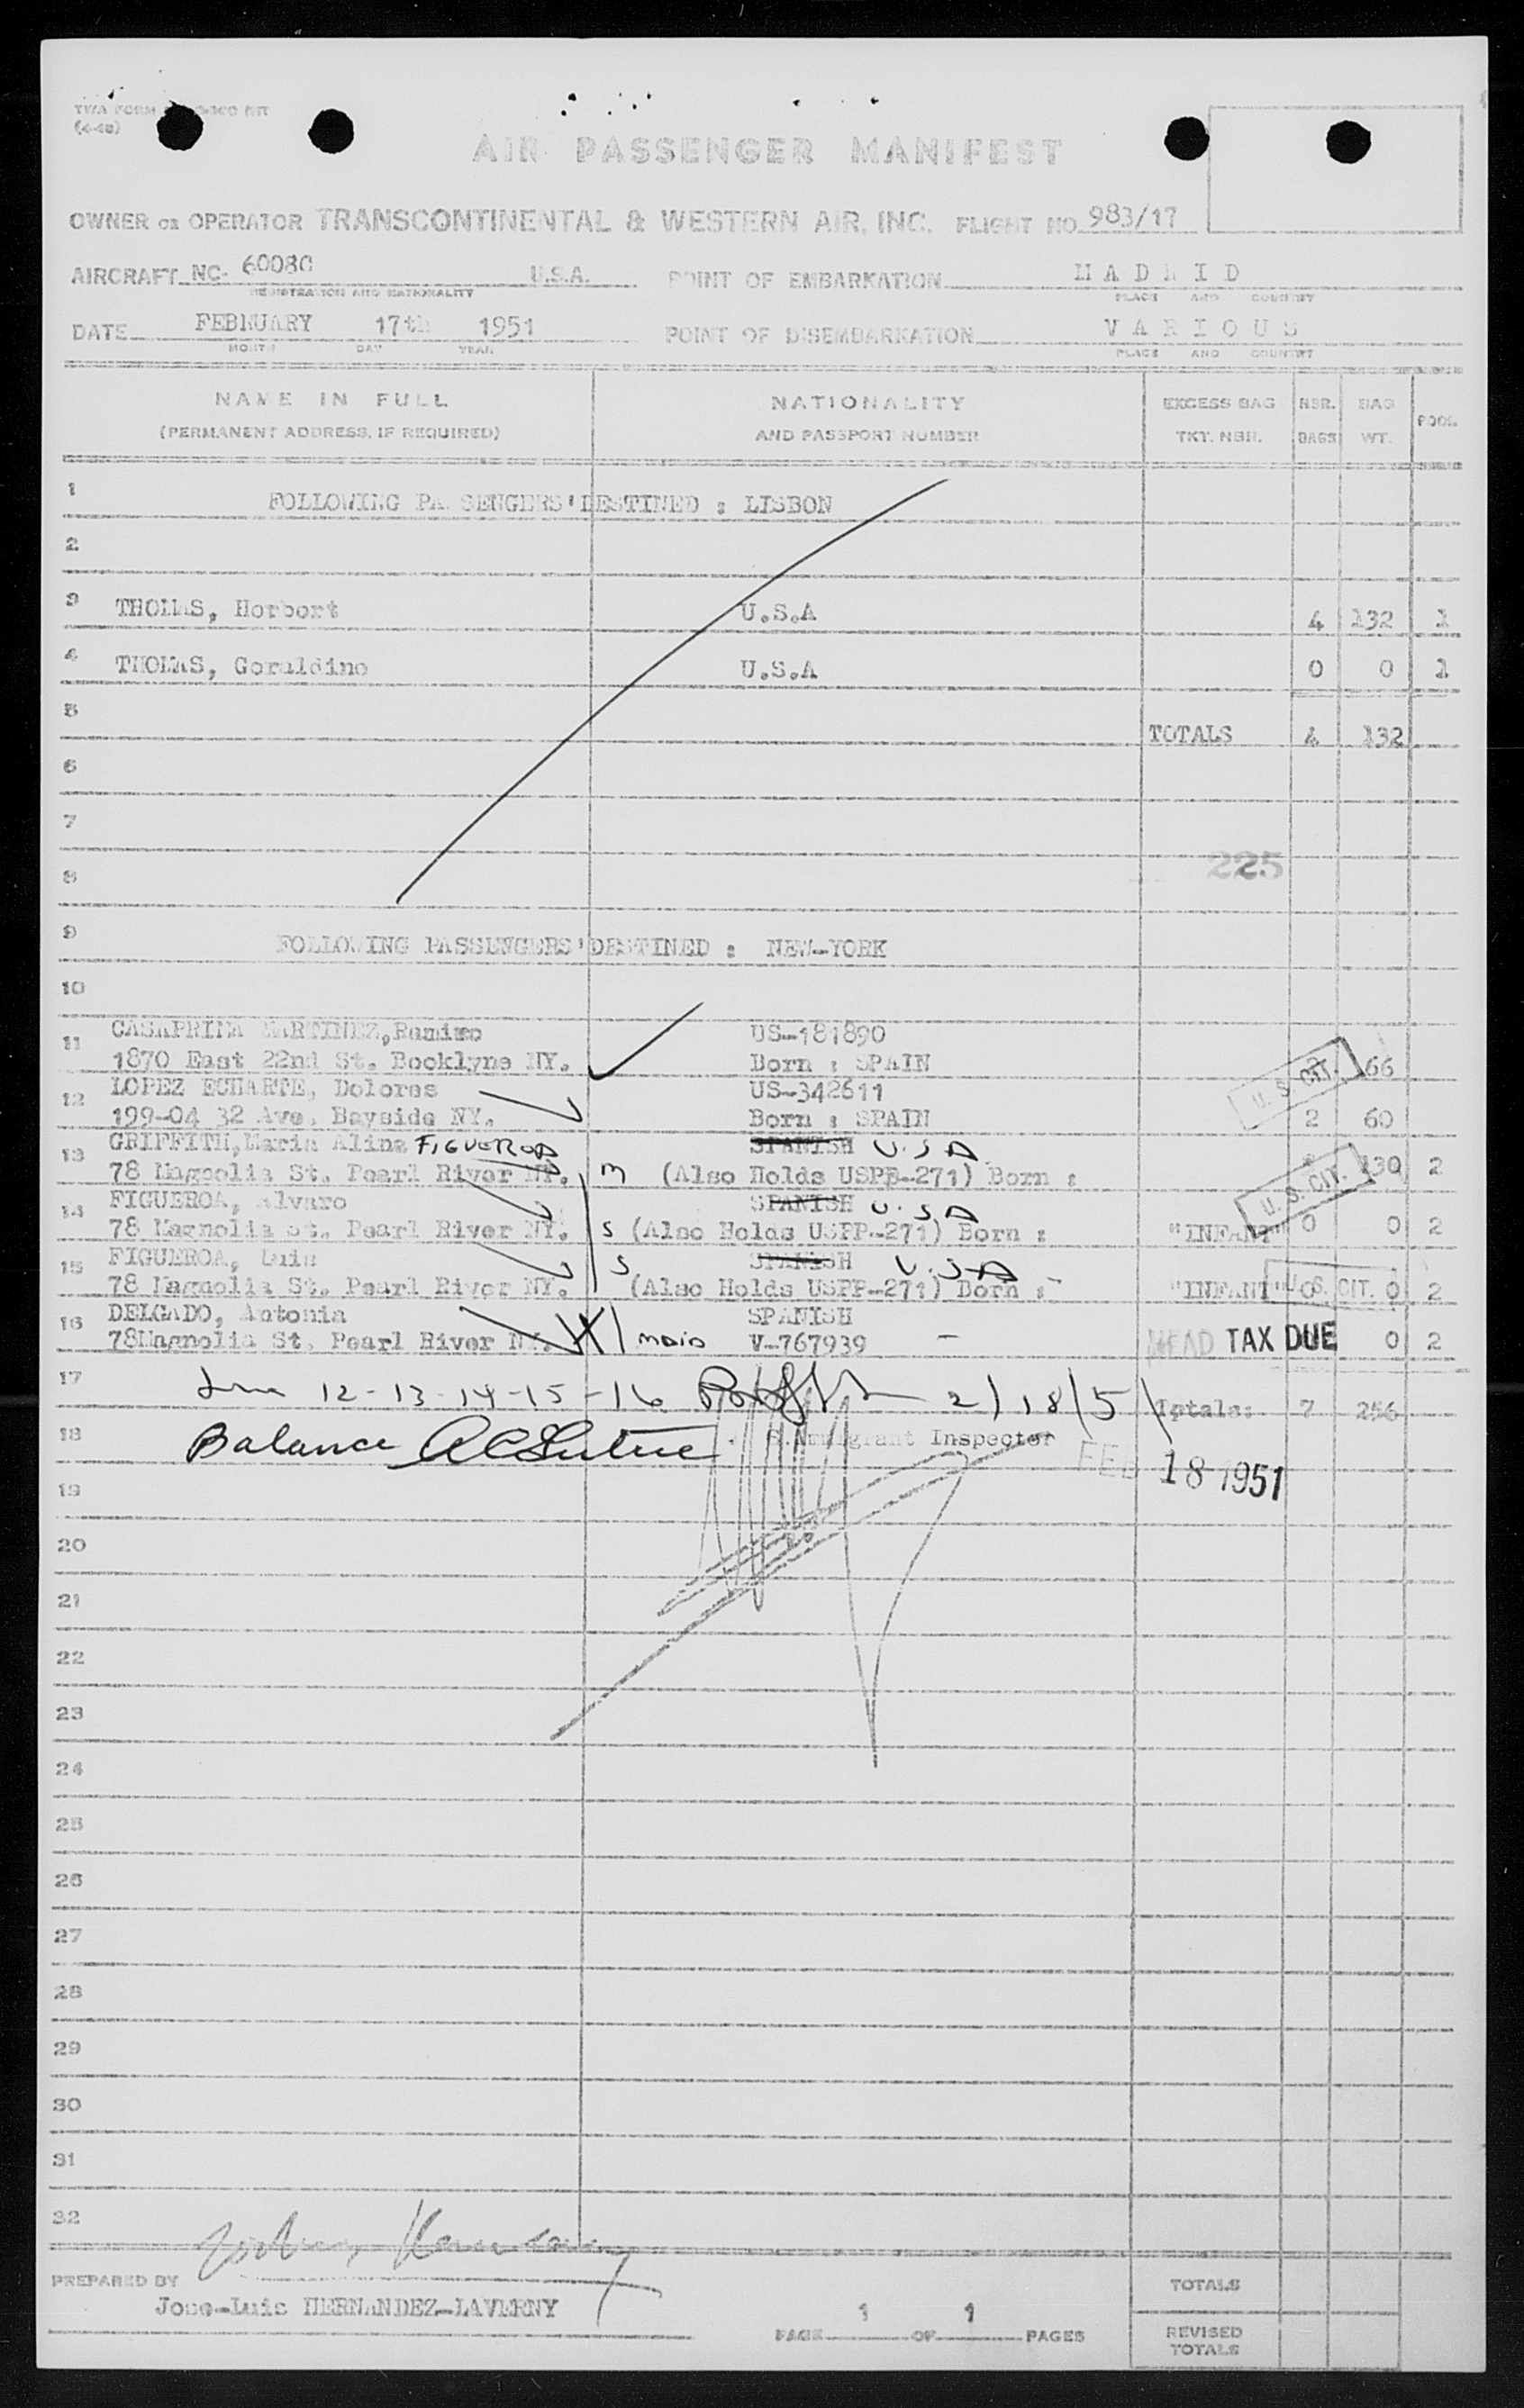 TWA FORM
(4-48)
AIR PASSENGER MANIFEST
OWNER OR OPERATOR TRANSCONTINENTAL & WESTERN AIR, INC. FLIGHT NO 983/17
AIRCRAFT NC- 60080 U.S.A. POINT OF EMBARKATION MADRID
REGISTRATION AND NATIONALITY PLACE AND COUNTRY
DATE FEBRUARY 17th 1951 POINT OF DISEMBARKATION VARIOUS
MONTH DAY YEAR PLACE AND COUNTRY
NAME IN FULL NATIONALITY EXCESS BAG NBR. BAG POOL
(PERMANENT ADDRESS, IF REQUIRED) AND PASSPORT NUMBER TKT. NBR. BAGS WT.
1 FOLLOWING PA SENGERS' DESTINED : LISBON
2
3 THOMAS, Herbert U.S.A 4 132 1
4 THOMAS, Geraldine U.S.A 0 0 1
5 TOTALS 4 132
6
7
8 225
9 FOLLOWING PASSENGERS' DESTINED : NEW-YORK
10
11 CASAPRIMA MARTINEZ, Ramiro US-181890
1870 East 22nd St. Booklyne NY. Born : SPAIN U. S. CIT. 66
12 LOPEZ ECHARTE, Dolores US-342611
199-04 32 Ave. Bayside NY. Born : SPAIN 2 60
13 GRIFFITH, Maria Alina FIGUEROA SPANISH U.S.A.
78 Magnolia St. Pearl River NY. m (Also Holds USPP-271) Born : U. S. CIT. 130 2
14 FIGUEROA, Alvaro SPANISH U.S.A
78 Magnolia St. Pearl River NY. S (Also Holds USPP-271) Born : "INFANT" 0 0 2
15 FIGUEROA, Luis SPANISH U.S.A
78 Magnolia St. Pearl River NY. S (Also Holds USPP-271) Born : - "INFANT" 0 U. S. CIT. 0 2
16 DELGADO, Antonia SPANISH
78Magnolia St. Pearl River NY. maid V-767939 - HEAD TAX DUE 0 2
17 12-13-14-15-16 2/18/51 Totals: 7 256
18 Balance Immigrant Inspector
FEB 18 1951
19
20
21
22
23
24
25
26
27
28
29
30
31
32
PREPARED BY TOTALS
Jose-Luis HERNANDEZ-LAVERNY
PAGE 1 OF 1 PAGES REVISED
TOTALS